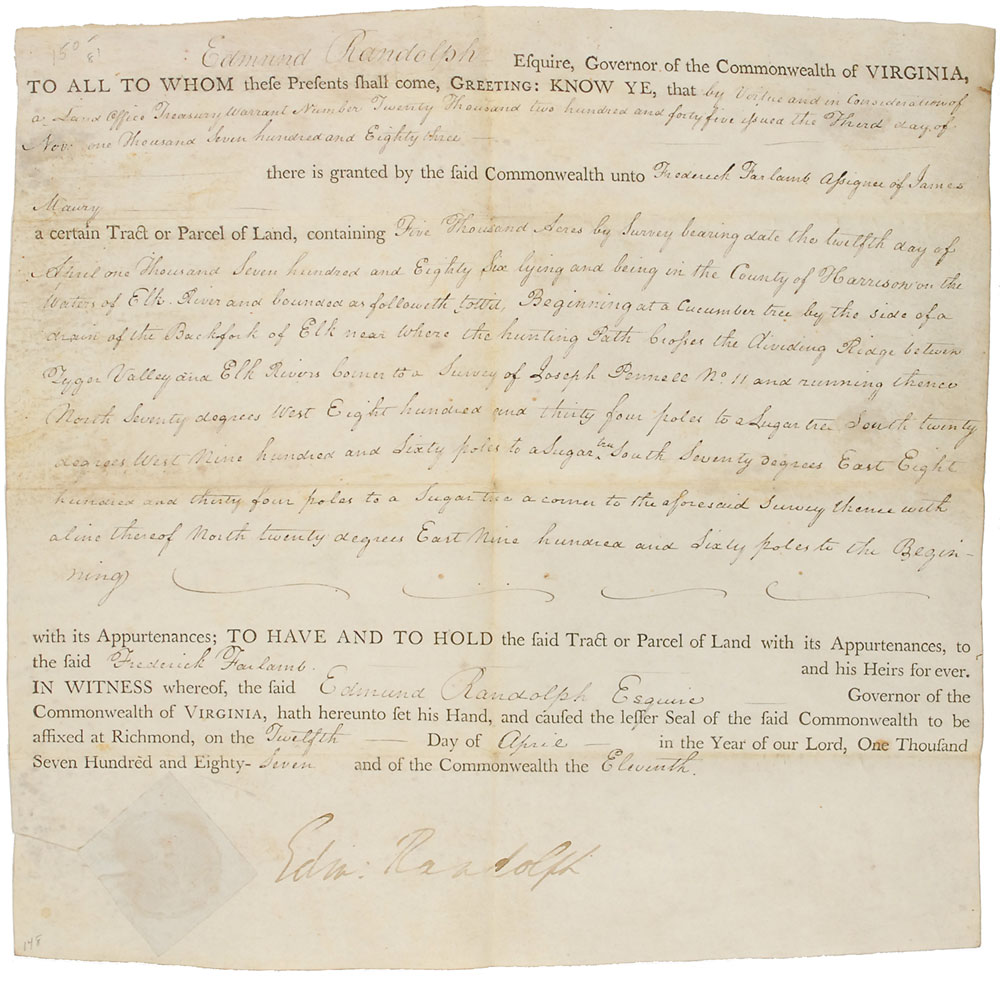 Edmund Randolph Esquire, Governor of the Commonwealth of VIRGINIA,
TO ALL TO WHOM theſe Preſents ſhall come, GREETING: KNOW YE, that by Virtue and in Consideration of
a Land Office Treasury Warrant Number Twenty Thousand two hundred and forty five issued the Third day of
Nov. one Thousand Seven hundred and Eighty three
there is granted by the ſaid Commonwealth unto Frederick Farlamb Aſsignee of James
Maury
a certain Tract or Parcel of Land, containing Five Thousand Acres by Survey bearing date the twelfth day of
April one Thousand Seven hundred and Eighty Six lying and being in the County of Harrison on the
Waters of Elk River and bounded as followeth towit, Beginning at a Cucumber tree by the side of a
drain of the Backfork of Elk near where the hunting Path Croſses the dividing Ridge between
Tyger Valley and Elk Rivers Corner to a Survey of Joseph Pennell No. 11 and running thence
North Seventy degrees West Eight hundred and thirty four poles to a Sugar tree South twenty
degrees West Nine hundred and Sixty poles to a Sugar tree South Seventy degrees East Eight
hundred and thirty four poles to a Sugar tree a corner to the aforesaid Survey thence with
a line thereof North twenty degrees East Nine hundred and Sixty poles to the Begin-
ning
with its Appurtenances; TO HAVE AND TO HOLD the ſaid Tract or Parcel of Land with its Appurtenances, to
the ſaid Frederick Farlamb. and his Heirs for ever.
IN WITNESS whereof, the ſaid Edmund Randolph Esquire Governor of the
Commonwealth of VIRGINIA, hath hereunto ſet his Hand, and cauſed the leſſer Seal of the ſaid Commonwealth to be
affixed at Richmond, on the Twelfth Day of April in the Year of our Lord, One Thouſand
Seven Hundred and Eighty-Seven and of the Commonwealth the Eleventh.
Edm: Randolph